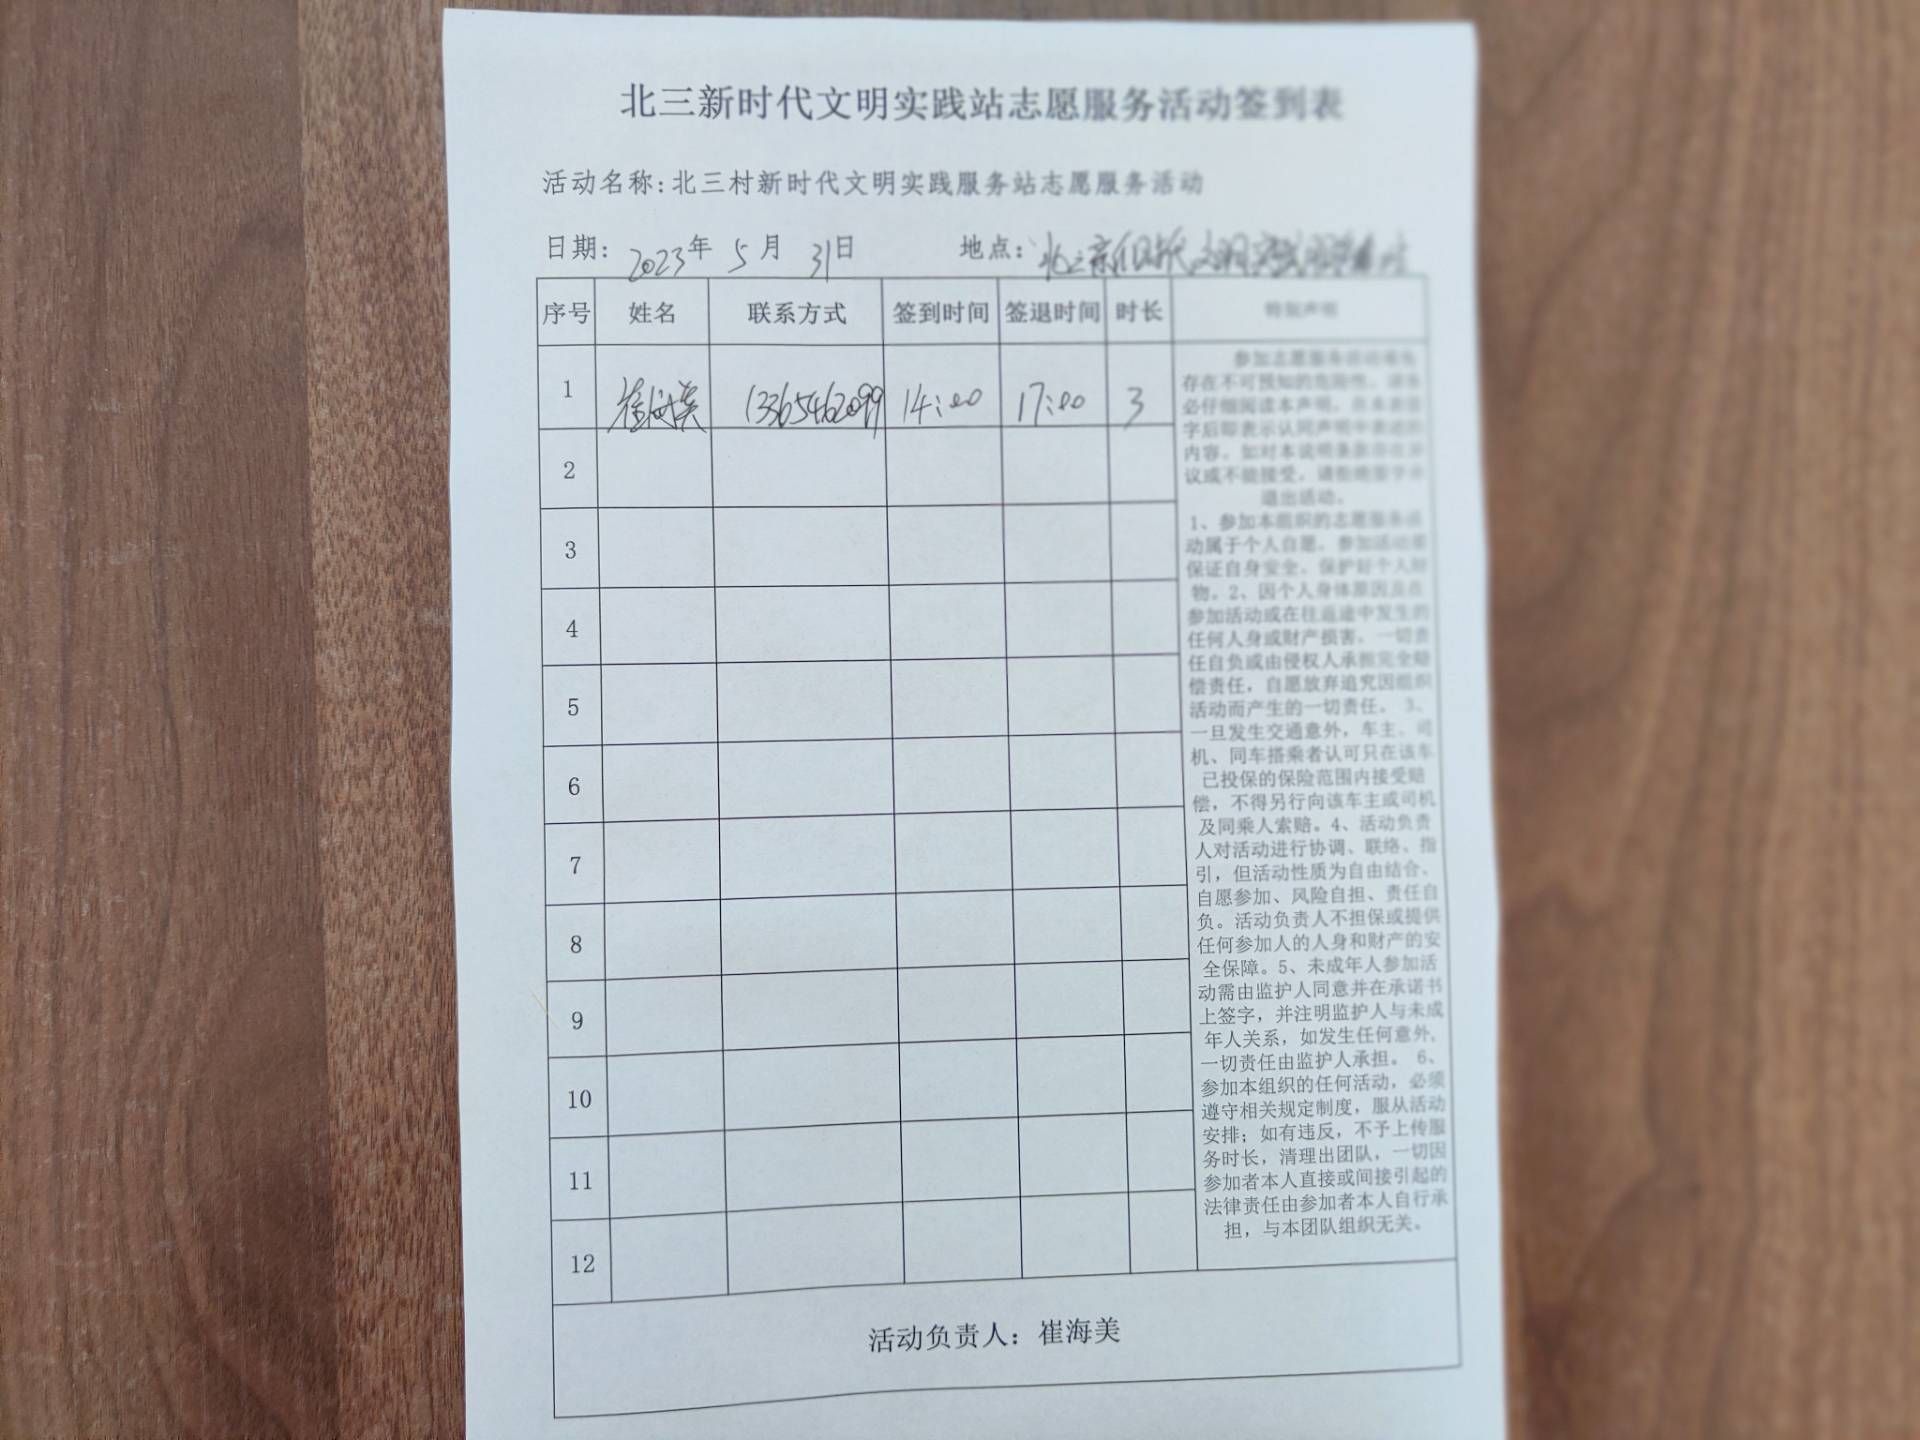 北三新时代文明实践站志愿服务活动签到表
活动名称:北三村新时代文明实践服务站志愿服务活动
日期: 2023年 5月 31日 地点: 北三新时代文明实践服务站
序号 姓名 联系方式 签到时间 签退时间 时长 特别声明
1 崔海美 13365462099 14:00 17:00 3
2
3
4
5
6
7
8
9
10
11
12
参加志愿服务活动
存在不可预知的危险性,请务
必仔细阅读本声明,
字后即表示认同声明中表述的
内容。如对本说明条款存在异
议或不能接受,请拒绝签字并
退出活动。
1、参加本组织的志愿服务活
动属于个人自愿。参加活动需
保证自身安全,保护好个人财
物。2、因个人身体原因及在
参加活动或在往返途中发生的
任何人身或财产损害,一切责
任自负或由侵权人承担完全赔
偿责任,自愿放弃追究因组织
活动而产生的一切责任。3、
一旦发生交通意外,车主、司
机、同车搭乘者认可只在该车
已投保的保险范围内接受赔
偿,不得另行向该车主或司机
及同乘人索赔。4、活动负责
人对活动进行协调、联络、指
引,但活动性质为自由结合、
自愿参加、风险自担、责任自
负。活动负责人不担保或提供
任何参加人的人身和财产的安
全保障。5、未成年人参加活
动需由监护人同意并在承诺书
上签字,并注明监护人与未成
年人关系,如发生任何意外,
一切责任由监护人承担。6、
参加本组织的任何活动,必须
遵守相关规定制度,服从活动
安排;如有违反,不予上传服
务时长,清理出团队,一切因
参加者本人直接或间接引起的
法律责任由参加者本人自行承
担,与本团队组织无关。
活动负责人:崔海美